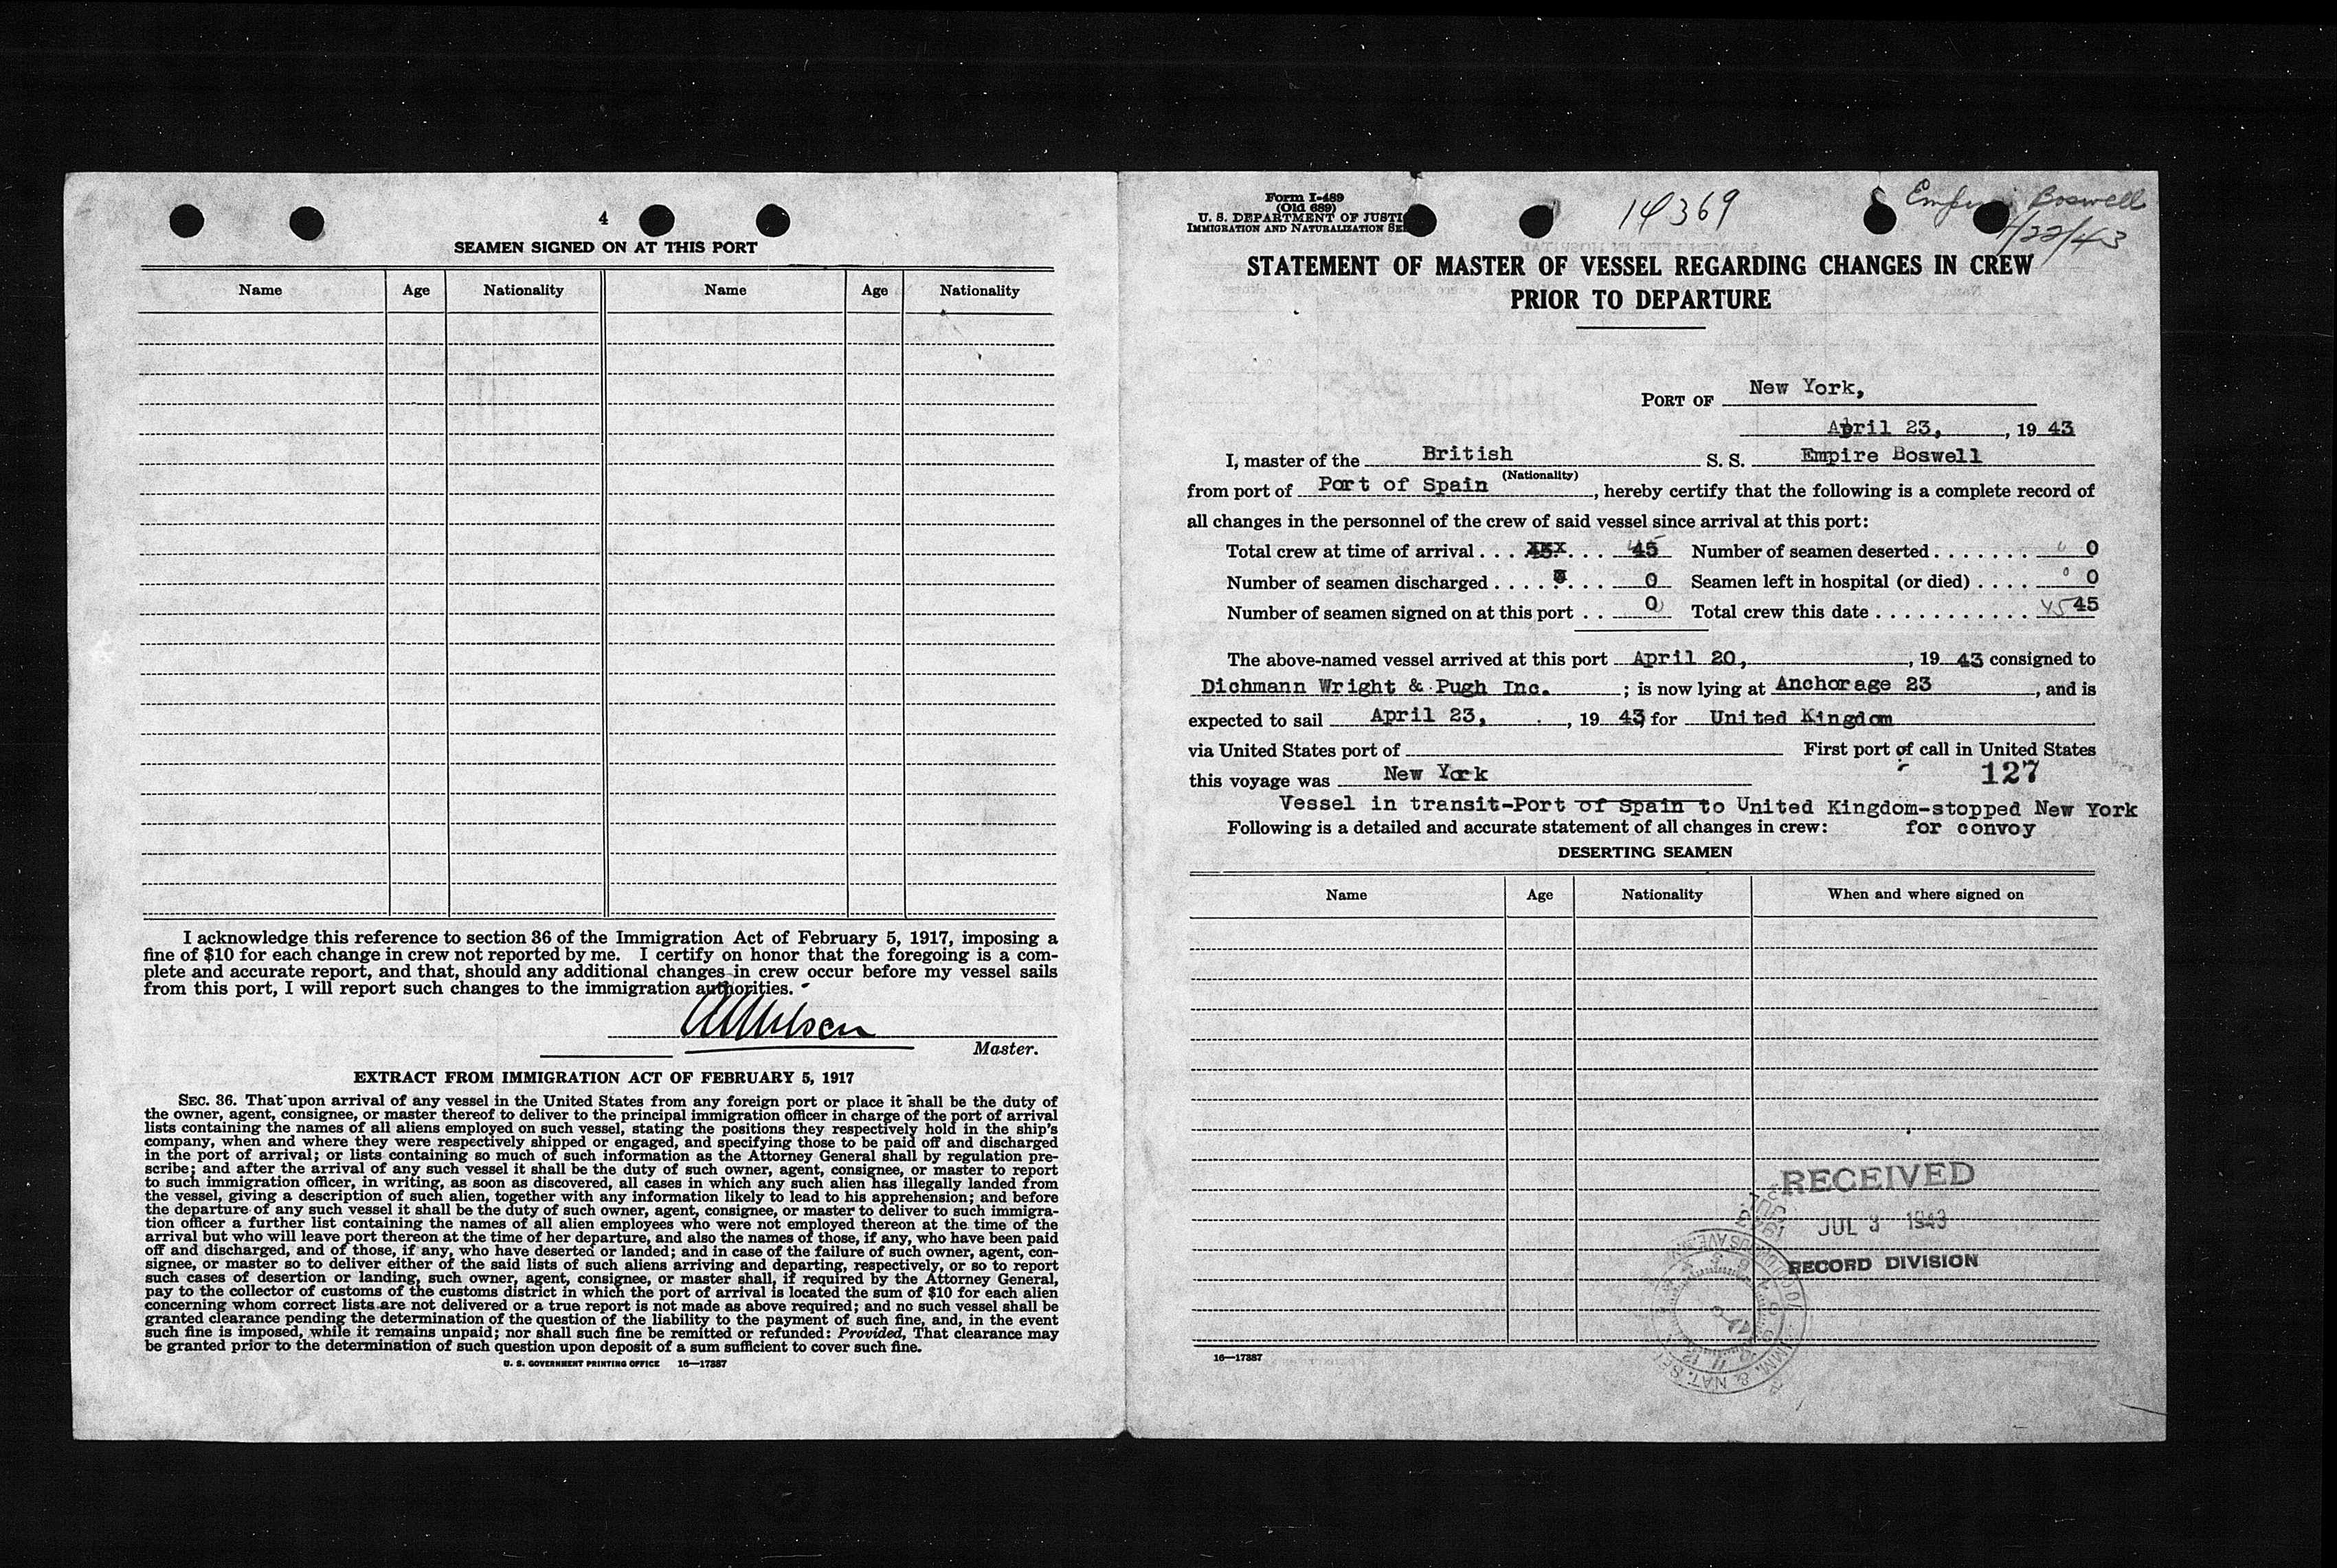 4
SEAMEN SIGNED ON AT THIS PORT
Name Age Nationality Name Age Nationality
I acknowledge this reference to section 36 of the Immigration Act of February 5, 1917, imposing a
fine of $10 for each change in crew not reported by me. I certify on honor that the foregoing is a com-
plete and accurate report, and that, should any additional changes in crew occur before my vessel sails
from this port, I will report such changes to the immigration authorities.
Master.
EXTRACT FROM IMMIGRATION ACT OF FEBRUARY 5, 1917
SEC. 36. That upon arrival of any vessel in the United States from any foreign port or place it shall be the duty of
the owner, agent, consignee, or master thereof to deliver to the principal immigration officer in charge of the port of arrival
lists containing the names of all aliens employed on such vessel, stating the positions they respectively hold in the ship's
company, when and where they were respectively shipped or engaged, and specifying those to be paid off and discharged
in the port of arrival; or lists containing so much of such information as the Attorney General shall by regulation pre-
scribe; and after the arrival of any such vessel it shall be the duty of such owner, agent, consignee, or master to report
to such immigration officer, in writing, as soon as discovered, all cases in which any such alien has illegally landed from
the vessel, giving a description of such alien, together with any information likely to lead to his apprehension; and before
the departure of any such vessel it shall be the duty of such owner, agent, consignee, or master to deliver to such immigra-
tion officer a further list containing the names of all alien employees who were not employed thereon at the time of the
arrival but who will leave port thereon at the time of her departure, and also the names of those, if any, who have been paid
off and discharged, and of those, if any, who have deserted or landed; and in case of the failure of such owner, agent, con-
signee, or master so to deliver either of the said lists of such aliens arriving and departing, respectively, or so to report
such cases of desertion or landing, such owner, agent, consignee, or master shall, if required by the Attorney General,
pay to the collector of customs of the customs district in which the port of arrival is located the sum of $10 for each alien
concerning whom correct lists are not delivered or a true report is not made as above required; and no such vessel shall be
granted clearance pending the determination of the question of the liability to the payment of such fine, and, in the event
such fine is imposed, while it remains unpaid; nor shall such fine be remitted or refunded: Provided, That clearance may
be granted prior to the determination of such question upon deposit of a sum sufficient to cover such fine.
U. S. GOVERNMENT PRINTING OFFICE 16—17387
Form I-489
(Old 689)
U. S. DEPARTMENT OF JUSTI
IMMIGRATION AND NATURALIZATION SE
14369
Boswell
/22/43
STATEMENT OF MASTER OF VESSEL REGARDING CHANGES IN CREW
PRIOR TO DEPARTURE
PORT OF New York,
April 23, , 19 43
I, master of the British S. S. Empire Boswell
(Nationality)
from port of Port of Spain , hereby certify that the following is a complete record of
all changes in the personnel of the crew of said vessel since arrival at this port:
Total crew at time of arrival . . . 45 Number of seamen deserted . . . . . . . 0
Number of seamen discharged . . . . 0 Seamen left in hospital (or died) . . . . 0
Number of seamen signed on at this port . . 0 Total crew this date . . . . . . . . . . . 45 45
The above-named vessel arrived at this port April 20, , 19 43 consigned to
Dichmann Wright & Pugh Inc. ; is now lying at Anchorage 23 , and is
expected to sail April 23, , 19 43 for United Kingdom
via United States port of First port of call in United States
this voyage was New York 127
Vessel in transit-Port of Spain to United Kingdom-stopped New York
Following is a detailed and accurate statement of all changes in crew: for convoy
DESERTING SEAMEN
Name Age Nationality When and where signed on
RECEIVED
JUL 3 1943
RECORD DIVISION
16—17387